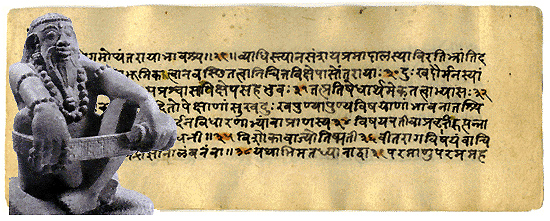 मोप्यंतरायाभावश्च॥२९॥व्याधिस्त्यानसंशयप्रमादालस्याविरतिभ्रांतिद
मिकत्वानवस्थितत्वानिचित्तविक्षेपास्तेंतरायाः३०दुःखदौर्मनस्यां
प्रश्वासविक्षेपसहभुवः३१तत्प्रतिषेधार्थमेकतत्वाभ्यासः३२
दितोपेक्षाणांसुखदुःखपुण्यापुण्यविषयाणांभावनातश्चि
र्दनविधारणाभ्यांवाप्राणस्य३४विषयवतीवाप्रवृत्तिरुत्पन्ना
धनी॥३५विशोकावाज्योतिष्मती३६वीतरागविषयंवाचि
ज्ञानालंबनंवा॥३८यथाभिमतध्यानाद्वा३९परमाणुपरममह